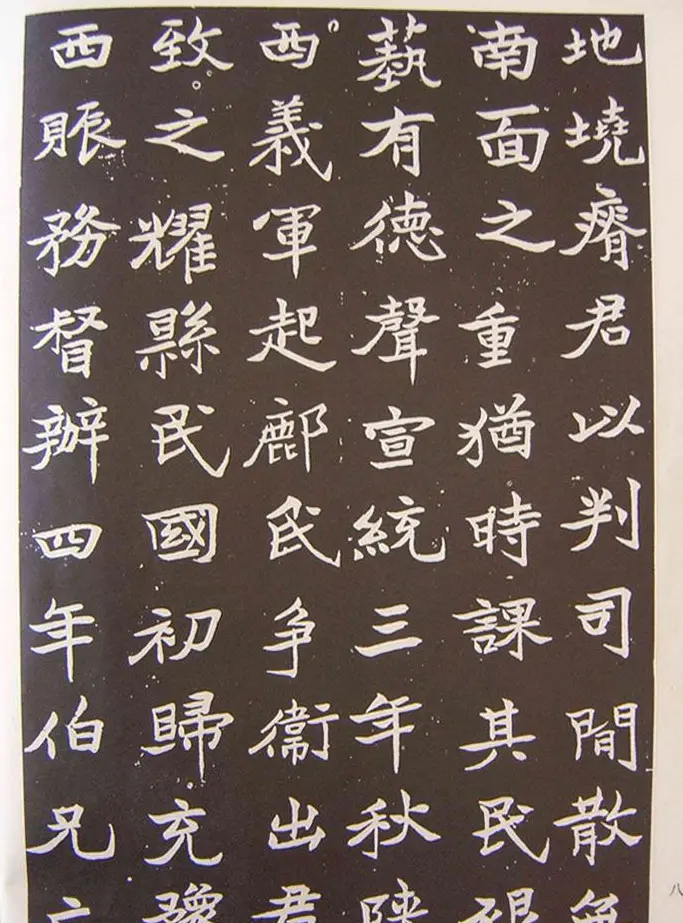 地墝瘠君以判司閒散
南面之重猶時課其民
藝有德聲宣統三年秋陝
西義軍起鄜民爭衛出君
致之耀縣民國初歸充豫
西賑務督辦四年伯兄亡
八